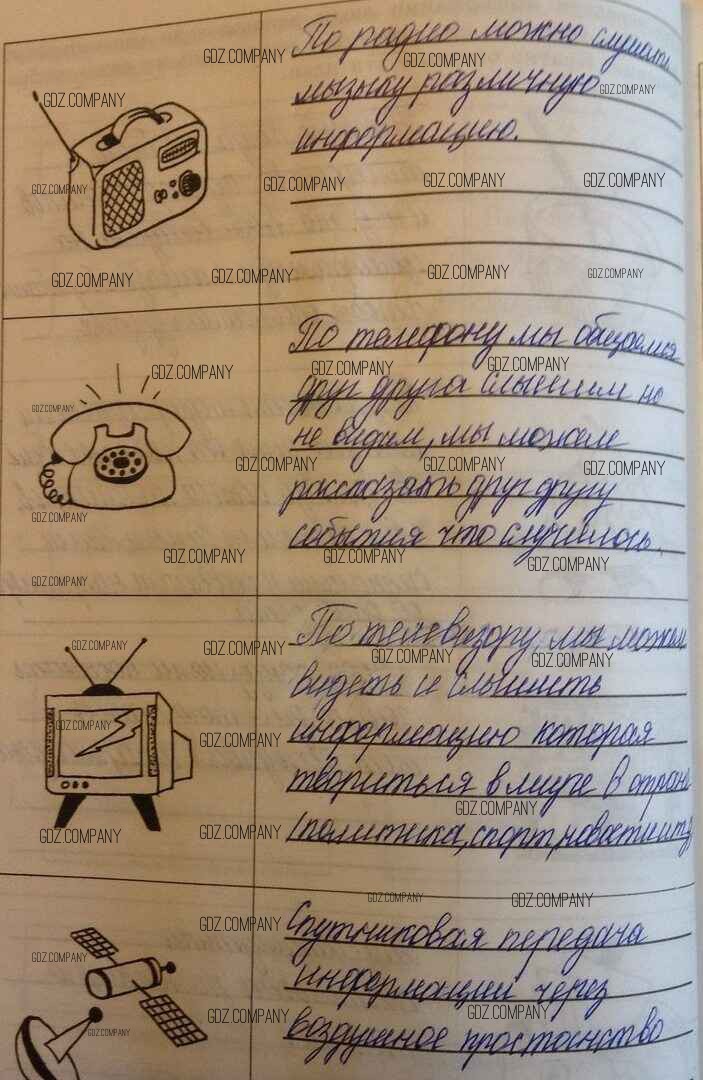 По радио можно слушать
мызыку различную
информацию.
По телефону мы общаемся
друг друга слышим но
не видим, мы можем
рассказать друг другу
события что случилось.
По телевизору мы можем
видеть и слышить
информацию которая
твориться в мире В стране
(политика, спорт, новости итд
Спутниковая передача
информации через
воздушное простонство
GDZ.COMPANY